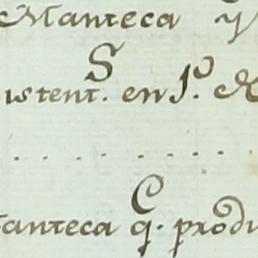 Manteca y
S
istent. en 1.º de
C
anteca q. produ